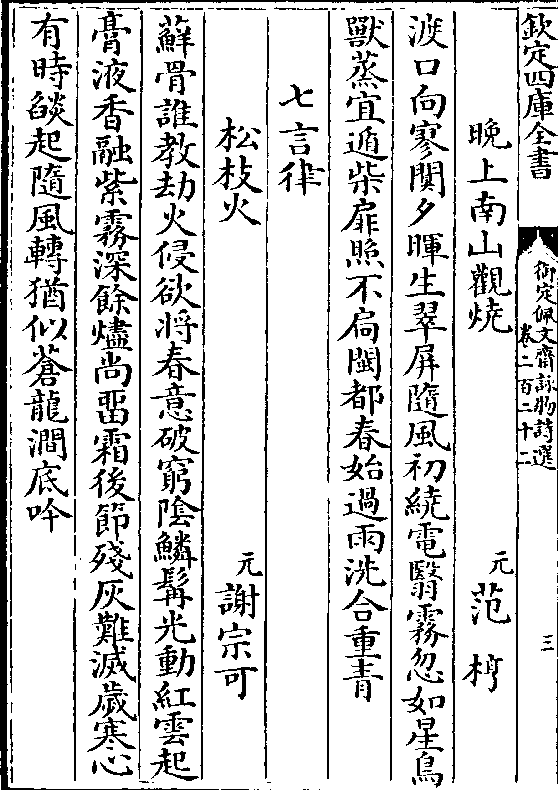 欽定四庫全書
御定佩文齋詠物詩選
卷二百二十二
三
晚上南山觀燒　元　范梈
渡口向寥闃夕暉生翠屏隨風初繞電翳霧忽如星鳥
獸蒸宜遁柴扉照不扃閩都春始過雨洗合重青
七言律
松枝火　元　謝宗可
蘚骨誰教劫火侵欲將春意破窮陰鱗髯光動紅雲起
膏液香融紫霧深餘燼尚畱霜後節殘灰難滅歲寒心
有時燄起隨風轉猶似蒼龍澗底吟